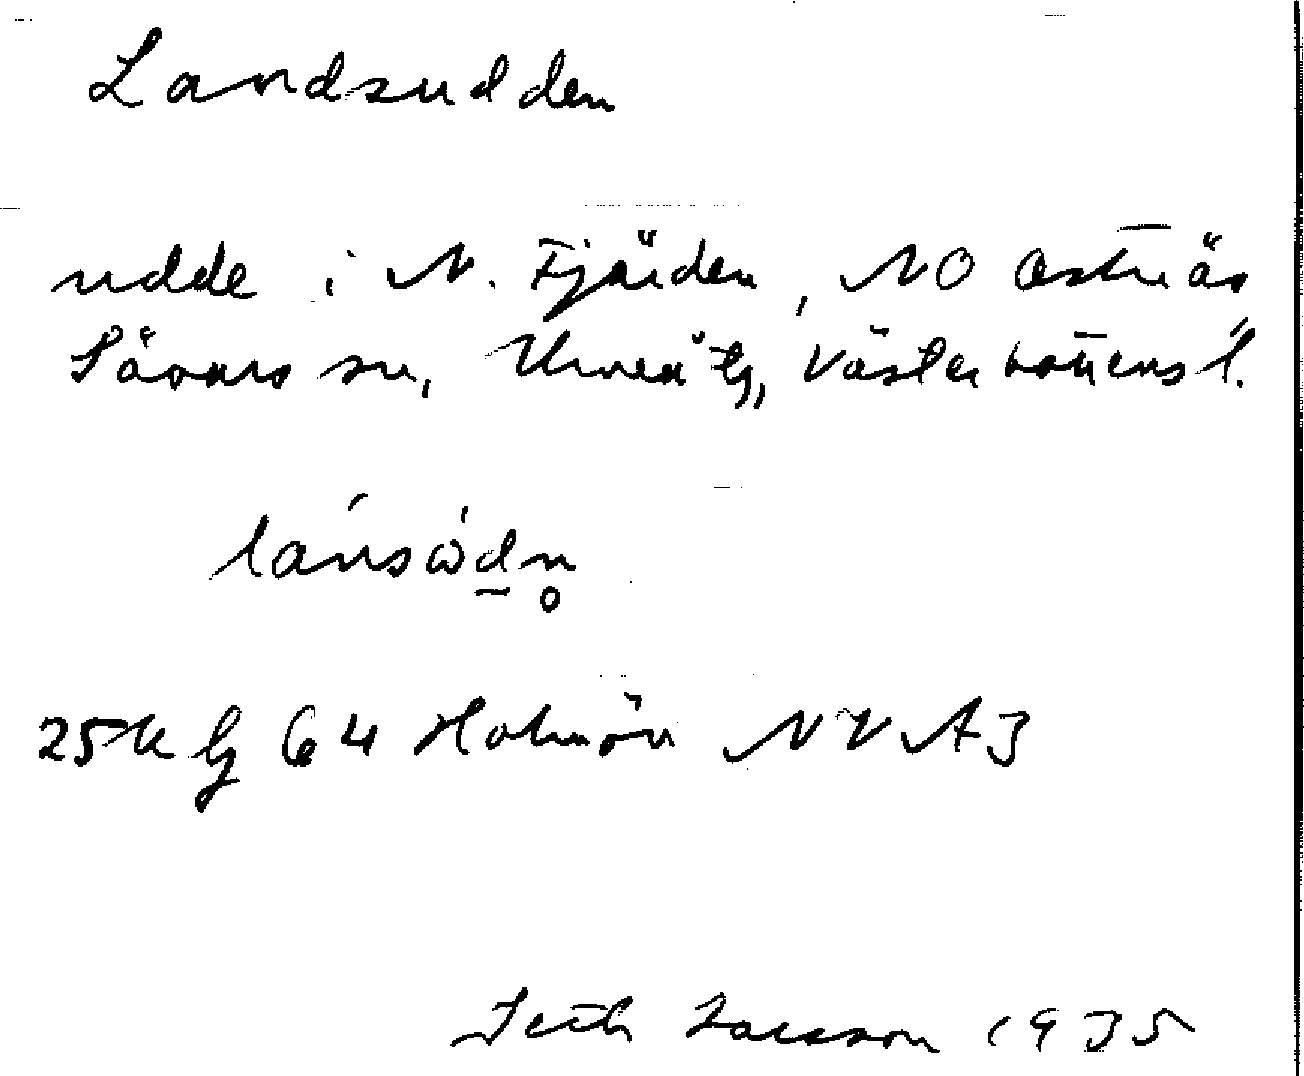 Landsudden
udde i N. Fjärden, NO Osträs
Sävars sn, Umeå tg, Västerbottens l.
25K g 64 Holmön NV A3
Seth Larsson 1935